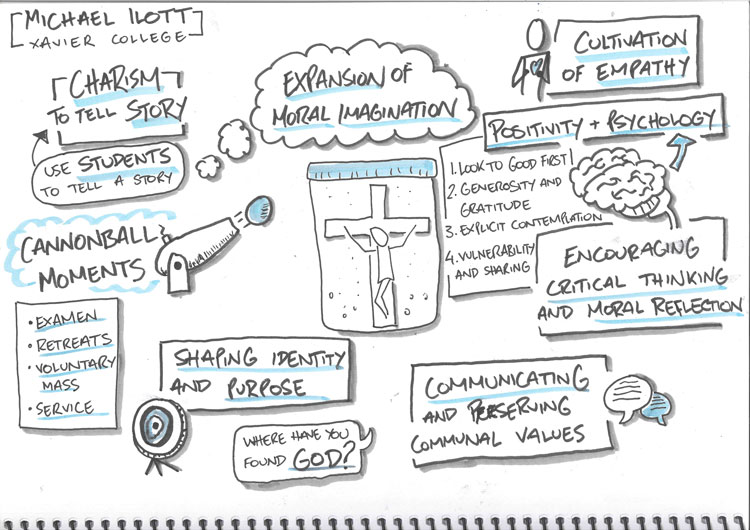 MICHAEL ILOTT
XAVIER COLLEGE
CHARISM
TO TELL STORY
USE STUDENTS
TO TELL A STORY
CANNONBALL
MOMENTS
• EXAMEN
• RETREATS
• VOLUNTARY
MASS
• SERVICE
EXPANSION OF
MORAL IMAGINATION
SHAPING IDENTITY
AND PURPOSE
WHERE HAVE YOU
FOUND GOD?
CULTIVATION
OF EMPATHY
POSITIVITY + PSYCHOLOGY
1. LOOK TO GOOD FIRST
2. GENEROSITY AND
GRATITUDE
3. EXPLICIT CONTEMPLATION
4. VULNERABILITY
AND SHARING
ENCOURAGING
CRITICAL THINKING
AND MORAL REFLECTION
COMMUNICATING
AND PERSERVING
COMMUNAL VALUES